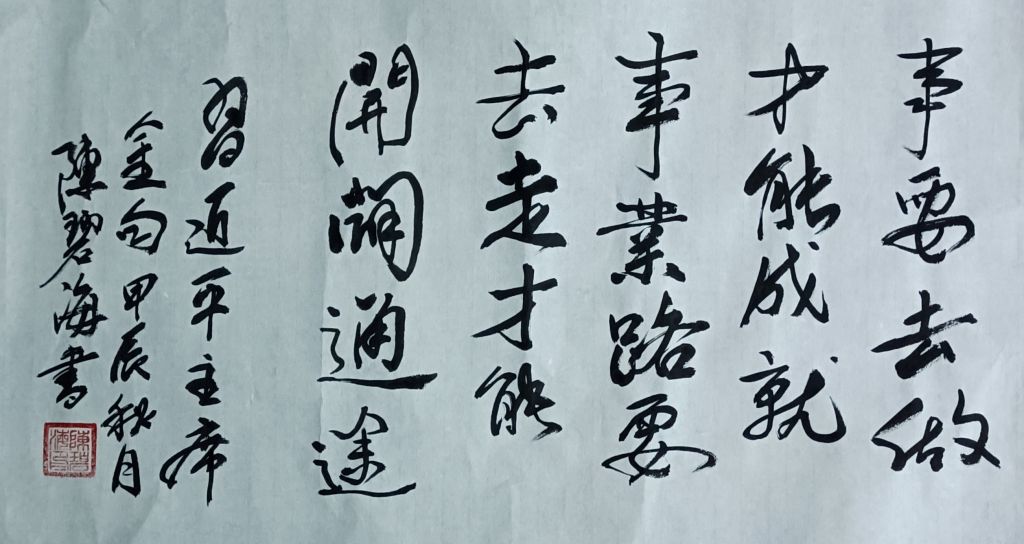 事要去做
才能成就
事業路要
去走才能
開闢通途
習近平主席
金句甲辰秋月
陳碧海書